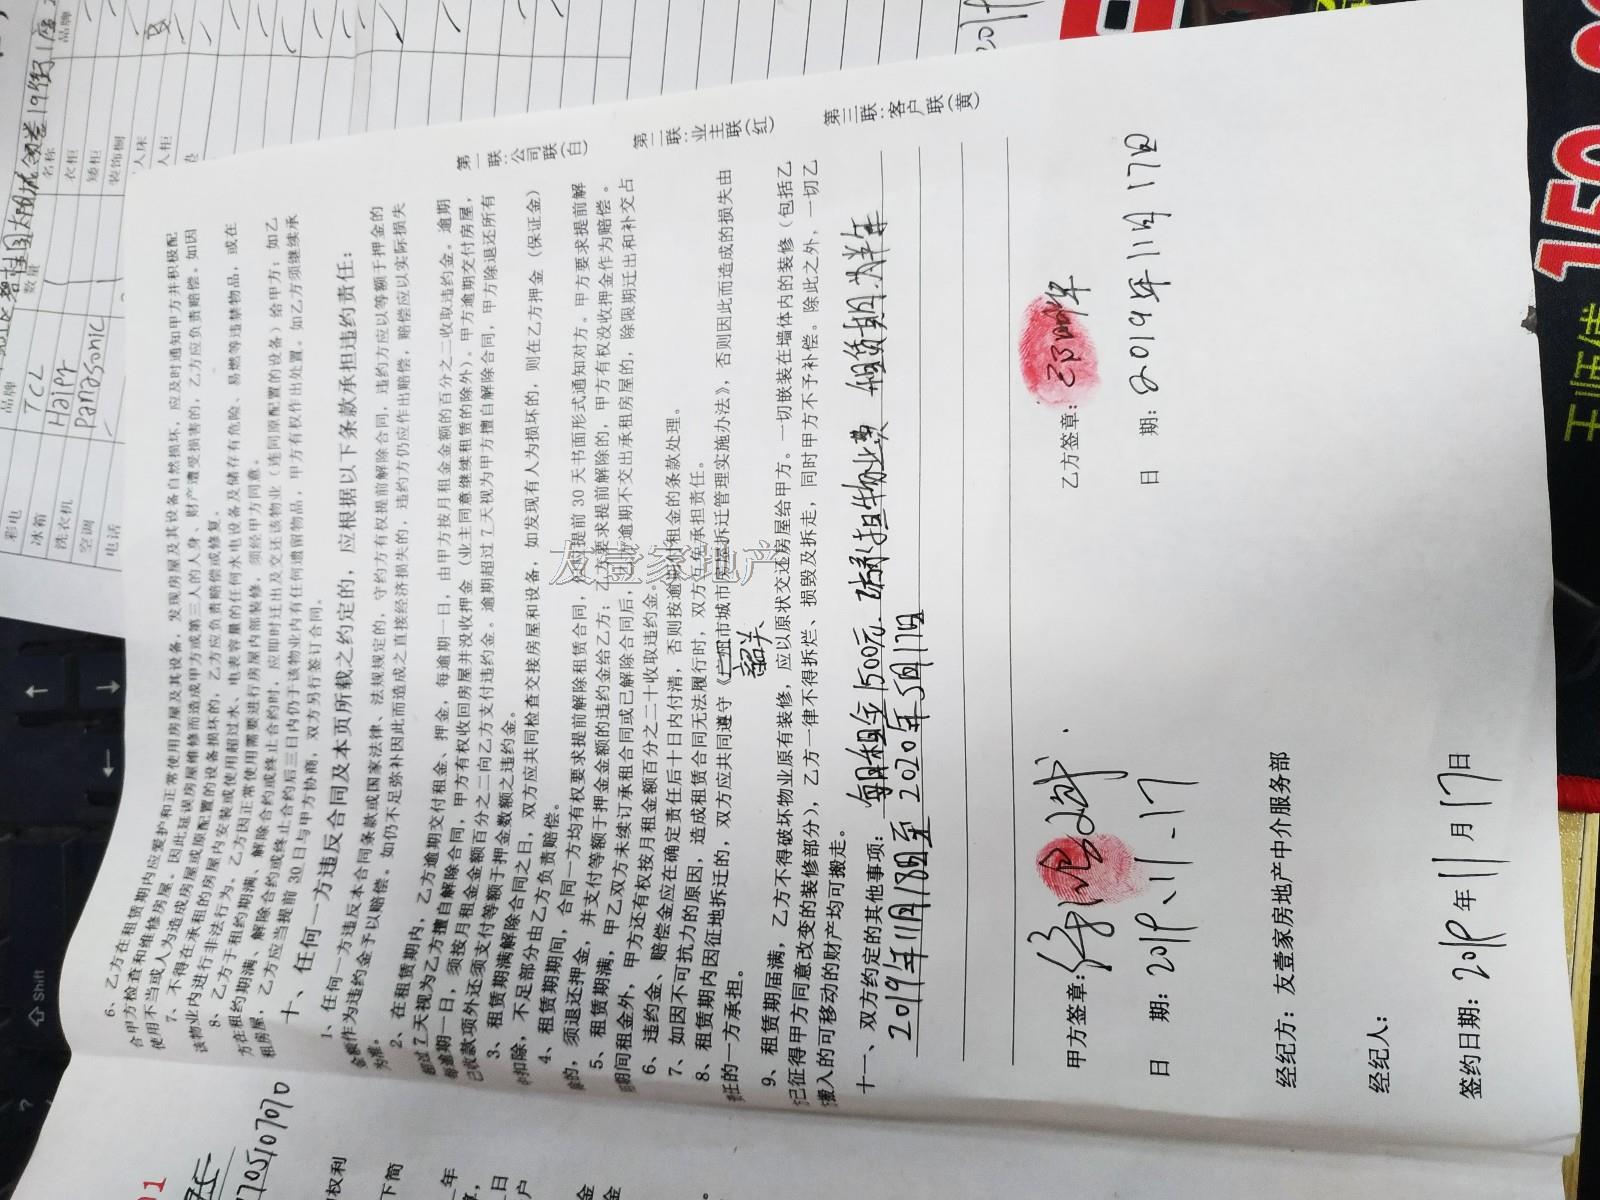 6、乙方在租赁期内应爱护和正常使用房屋及其设备,发现房屋及其设备自然损坏,应及时通知甲方并积极配
合甲方检查和维修房屋。因此延误房屋维修而造成甲方或第三人的人身、财产遭受损害的,乙方应负责赔偿。如因
使用不当或人为造成房屋或原配置的设备损坏的,乙方应负责赔偿或修复。
7、不得在承租的房屋内安装或使用超过水、电表容量的任何水电设备及储存有危险、易燃等违禁物品,或在
该物业内进行非法行为。乙方因正常使用需要进行房屋内部装修,须经甲方同意。
8、乙方于租约期满、解除合约或终止合约时,应即时迁出及交还该物业(连同原配置的设备)给甲方;如乙
方在租约期满、解除合约或终止合约后三日内仍于该物业内有任何遗留物品,甲方有权作出处置。如乙方须继续承
租房屋,乙方应当提前30日与甲方协商,双方另行签订合同。
十、任何一方违反合同及本页所载之约定的,应根据以下条款承担违约责任:
1、任何一方违反本合同条款或国家法律、法规规定的,守约方有权提前解除合同,违约方应以等额于押金的
金额作为违约金予以赔偿。如仍不足弥补因此而造成之直接经济损失的,违约方仍应作出赔偿,赔偿应以实际损失
为准。
2、在租赁期内,乙方逾期交付租金、押金,每逾期一日,由甲方按月租金金额的百分之二收取违约金。逾期
超过7天视为乙方擅自解除合同,甲方有权收回房屋并没收押金(业主同意继续租赁的除外)。甲方逾期交付房屋,
每逾期一日,须按月租金金额百分之二向乙方支付违约金。逾期超过7天视为甲方擅自解除合同,甲方除退还所有
已收款项外还须支付等额于押金数额之违约金。
3、租赁期满解除合同之日,双方应共同检查交接房屋和设备,如发现有人为损坏的,则在乙方押金(保证金)
中扣除,不足部分由乙方负责赔偿。
4、租赁期期间,合同一方均有权要求提前解除租赁合同,但应提前30天书面形式通知对方。甲方要求提前解
除的,须退还押金,并支付等额于押金金额的违约金给乙方;乙方要求提前解除的,甲方有权没收押金作为赔偿。
5、租赁期满,甲乙双方未续订承租合同或已解除合同后,乙方逾期不交出承租房屋的,除限期迁出和补交占
用期间租金外,甲方还有权按月租金额百分之二十收取违约金。
6、违约金、赔偿金应在确定责任后十日内付清,否则按逾期付租金的条款处理。
7、如因不可抗力的原因,造成租赁合同无法履行时,双方互免承担责任。
8、租赁期内因征地拆迁的,双方应共同遵守《广州市城市房屋拆迁管理实施办法》,否则因此而造成的损失由
韶关
责任的一方承担。
9、租赁期届满,乙方不得破坏物业原有装修,应以原状交还房屋给甲方。一切嵌装在墙体内的装修(包括乙
方已征得甲方同意改变的装修部分),乙方一律不得拆烂、损毁及拆走,同时甲方不予补偿。除此之外,一切乙
方搬入的可移动的财产均可搬走。
十一、双方约定的其他事项:每月租金1500元 乙方承担物业费 租赁期为半年
2019年11月18日至2020年5月17日
甲方签章:
乙方签章:
日 期:2019、11-17
日 期:2019年11月17日
经纪方:友壹家房地产中介服务部
经纪人:
签约日期:2019年11月17日
第一联:公司联(白)
第二联:业主联(红)
第三联:客户联(黄)
友壹家地产
品牌
数量
名称
品牌
彩电
TCL
衣柜
冰箱
Haier
矮柜
洗衣机
Panasonic
装饰橱
空调
电话
Shift
150